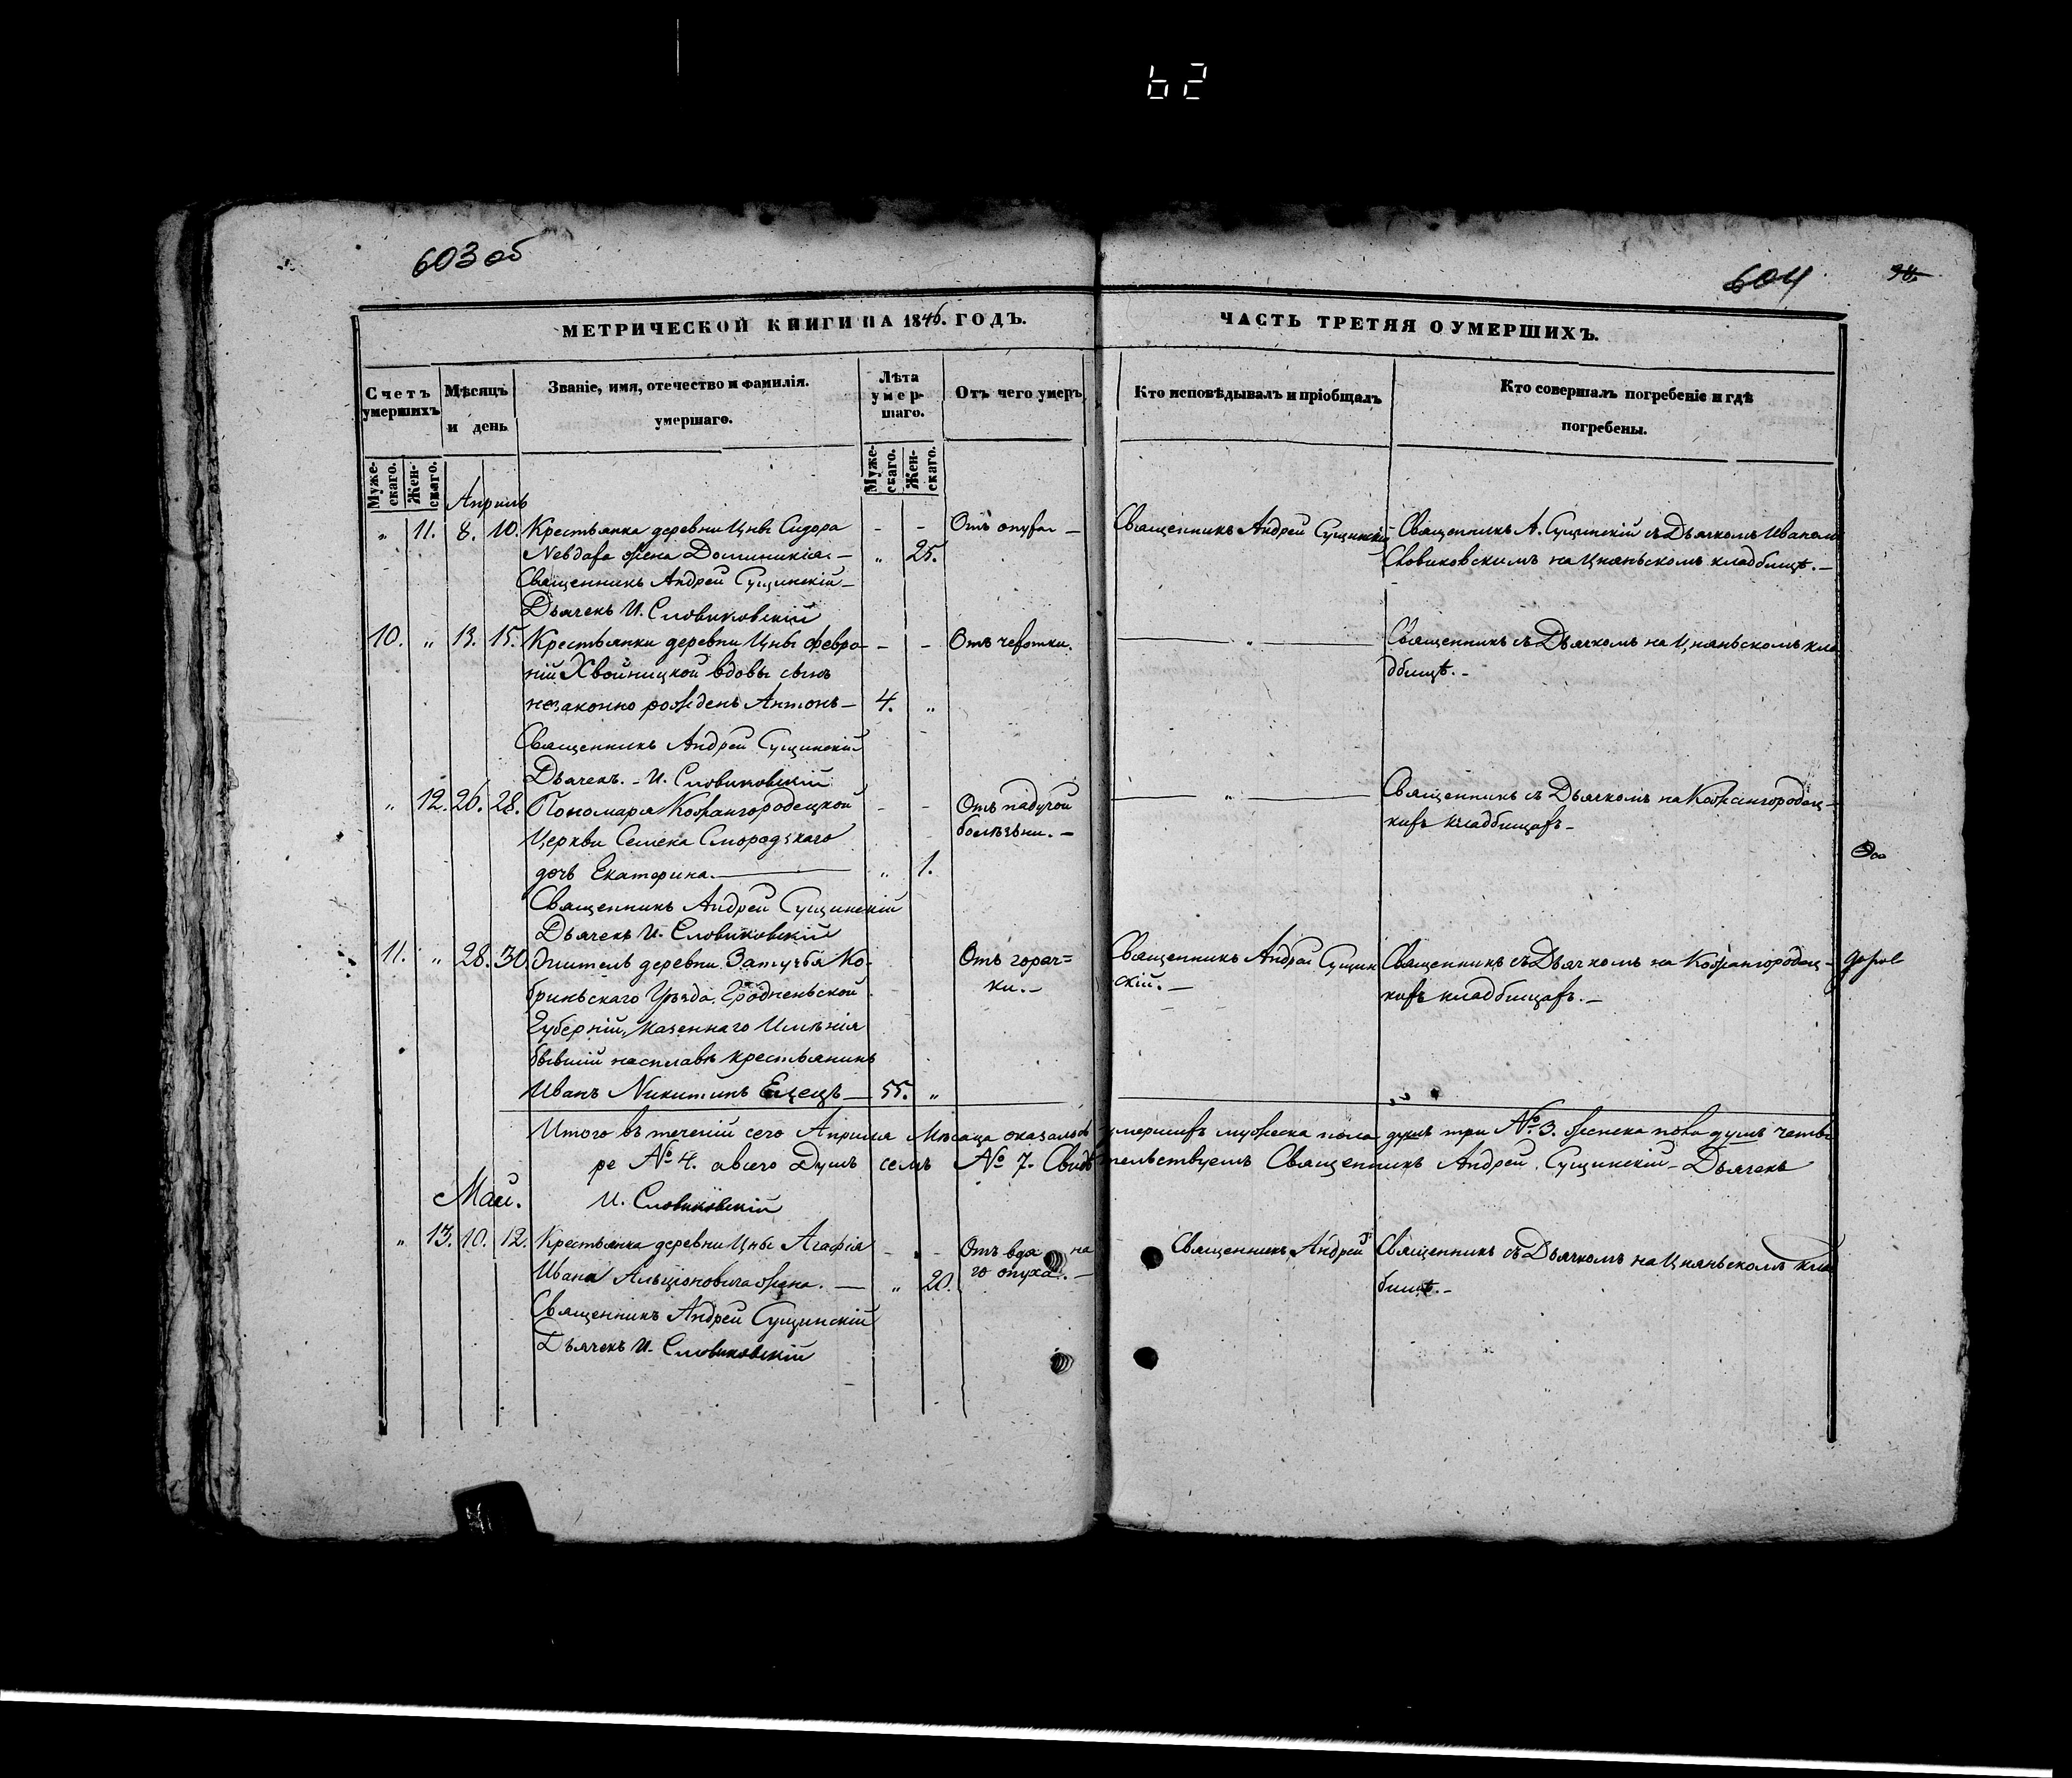 62
603 об
604
МЕТРИЧЕСКОЙ КНИГИ НА 1846. ГОДЪ.
ЧАСТЬ ТРЕТЯЯ О УМЕРШИХЪ.
Счетъ умершихъ
Мѣсяцъ и день
Званіе, имя, отечество и фамилія.
умершаго.
Лѣта умершаго.
Отъ чего умеръ
Кто исповѣдывалъ и пріобщалъ
Кто совершалъ погребеніе и гдѣ
погребены.
Мужескаго. Женскаго.
Мужескаго. Женскаго.
Апрель
„ 11. 8. 10. Крестьянка деревни Цны Сидора - - Отъ опуха — Священникъ Андрей Сущинскій Священникъ А. Сущинскій съ Дьячкомъ Иваномъ
жена Доминикія. — „ 25. Словиковскимъ на Цняньскомъ кладбищѣ. —
Священникъ Андрей Сущинскій —
Дьячекъ И. Словиковскій
10. „ 13. 15. Крестьянки деревни Цны Февро- - - Отъ чехотки. — „ — Священникъ съ Дьячкомъ на Цняньскомъ кла
ній Хвойницкой вдовы сынъ дбищѣ. -
незаконно рожденъ Антонъ — 4. „
Священникъ Андрей Сущинскій
Дьячекъ. - И. Словиковскій
„ 12. 26. 28. Пономаря Кожангородецкой - - Отъ падучой — „ — Священникъ съ Дьячкомъ на Кожангородец-
Церкви Семена Смородзкаго болѣзни. — кихъ кладбищахъ -
дочь Екатерина. — „ 1.
Священникъ Андрей Сущинскій
Дьячекъ И. Словиковскій
11. „ 28. 30. Жители деревни Затучья Ко- Отъ гореч= Священникъ Андрей Сущин Священникъ съ Дьячкомъ на Кожангородец-
бриньскаго Уѣзда, Гродненьской ки. — скій. — кихъ кладбищахъ. —
Губерній, казеннаго Имѣнія
бывшій на сплавѣ крестьянинъ
Иванъ Никитинъ Елецъ — 55. „
Итого въ теченій сего Апреля Мѣсяца оказалось умершихъ мужеска пола душъ три № 3. женска пола душъ четы
ре № 4. а всего Душъ семь № 7. Свидѣтельствуемъ Священникъ Андрей Сущинскій — Дьячекъ
И. Словиковскій
Май.
„ 13. 10. 12. Крестьянка деревни Цны Агафія - - Священникъ Андрей Священникъ съ Дьячкомъ на Цняньскомъ кла
Ивана жена. — „ 20. го опуха. — бищѣ. -
Священникъ Андрей Сущинскій
Дьячекъ И. Словиковскій